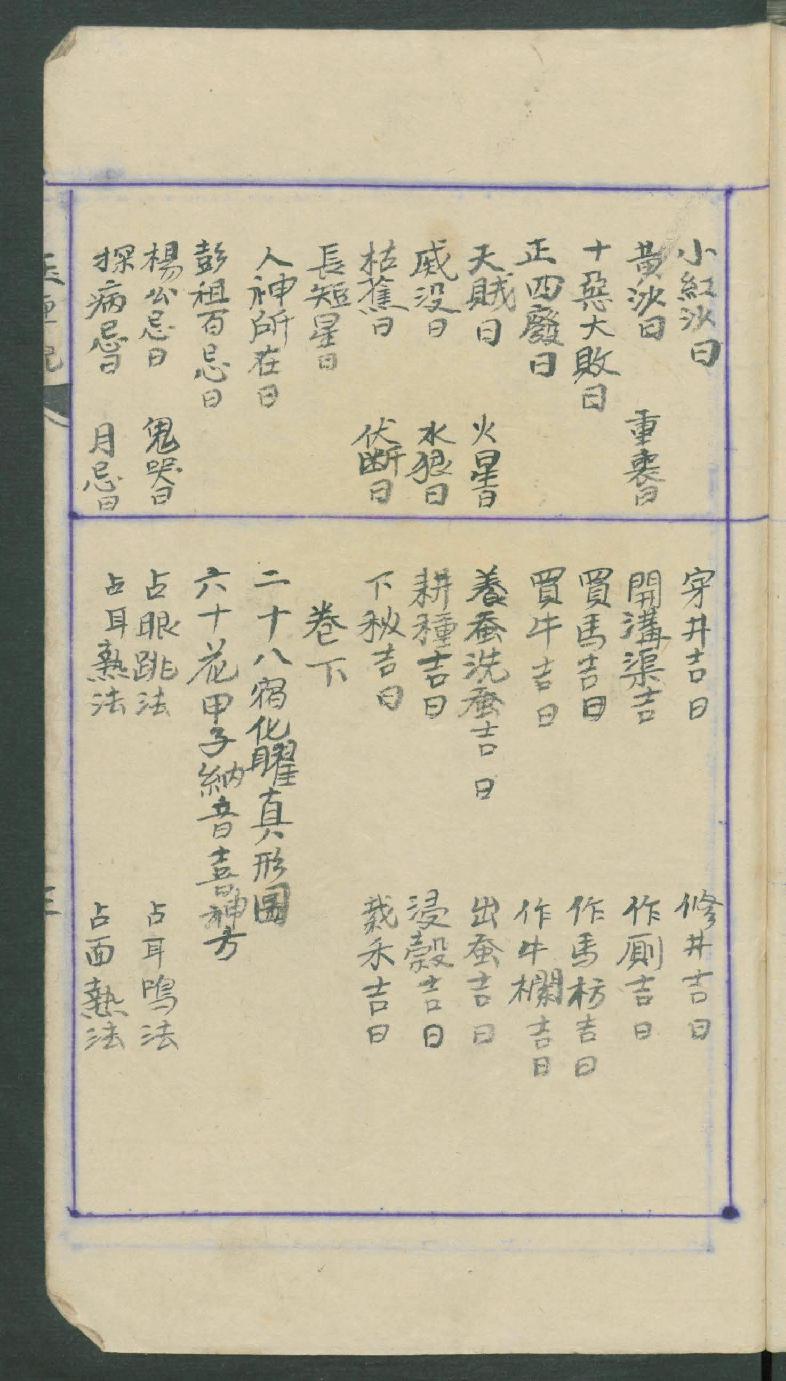 小紅沙日
黃沙日 重喪日
十惡大敗日
正四廢日
天賊日 火星日
滅没日 水狼日
枯蕉日 伏断日
長短星日
人神所在日
彭祖百忌日
楊公忌日 鬼哭日
探病忌日 月忌日
穿井吉日 修井吉日
開溝渠吉 作厠吉日
買馬吉日 作馬枋吉日
買牛吉日 作牛欄吉日
養蚕洗蚕吉日 出蚕吉日
耕種吉日 浸穀吉日
下秧吉日 栽禾吉日
卷下
二十八宿化曜真形圖
六十花甲子納音喜神方
占眼跳法 占耳鳴法
占耳熱法 占面熱法
三